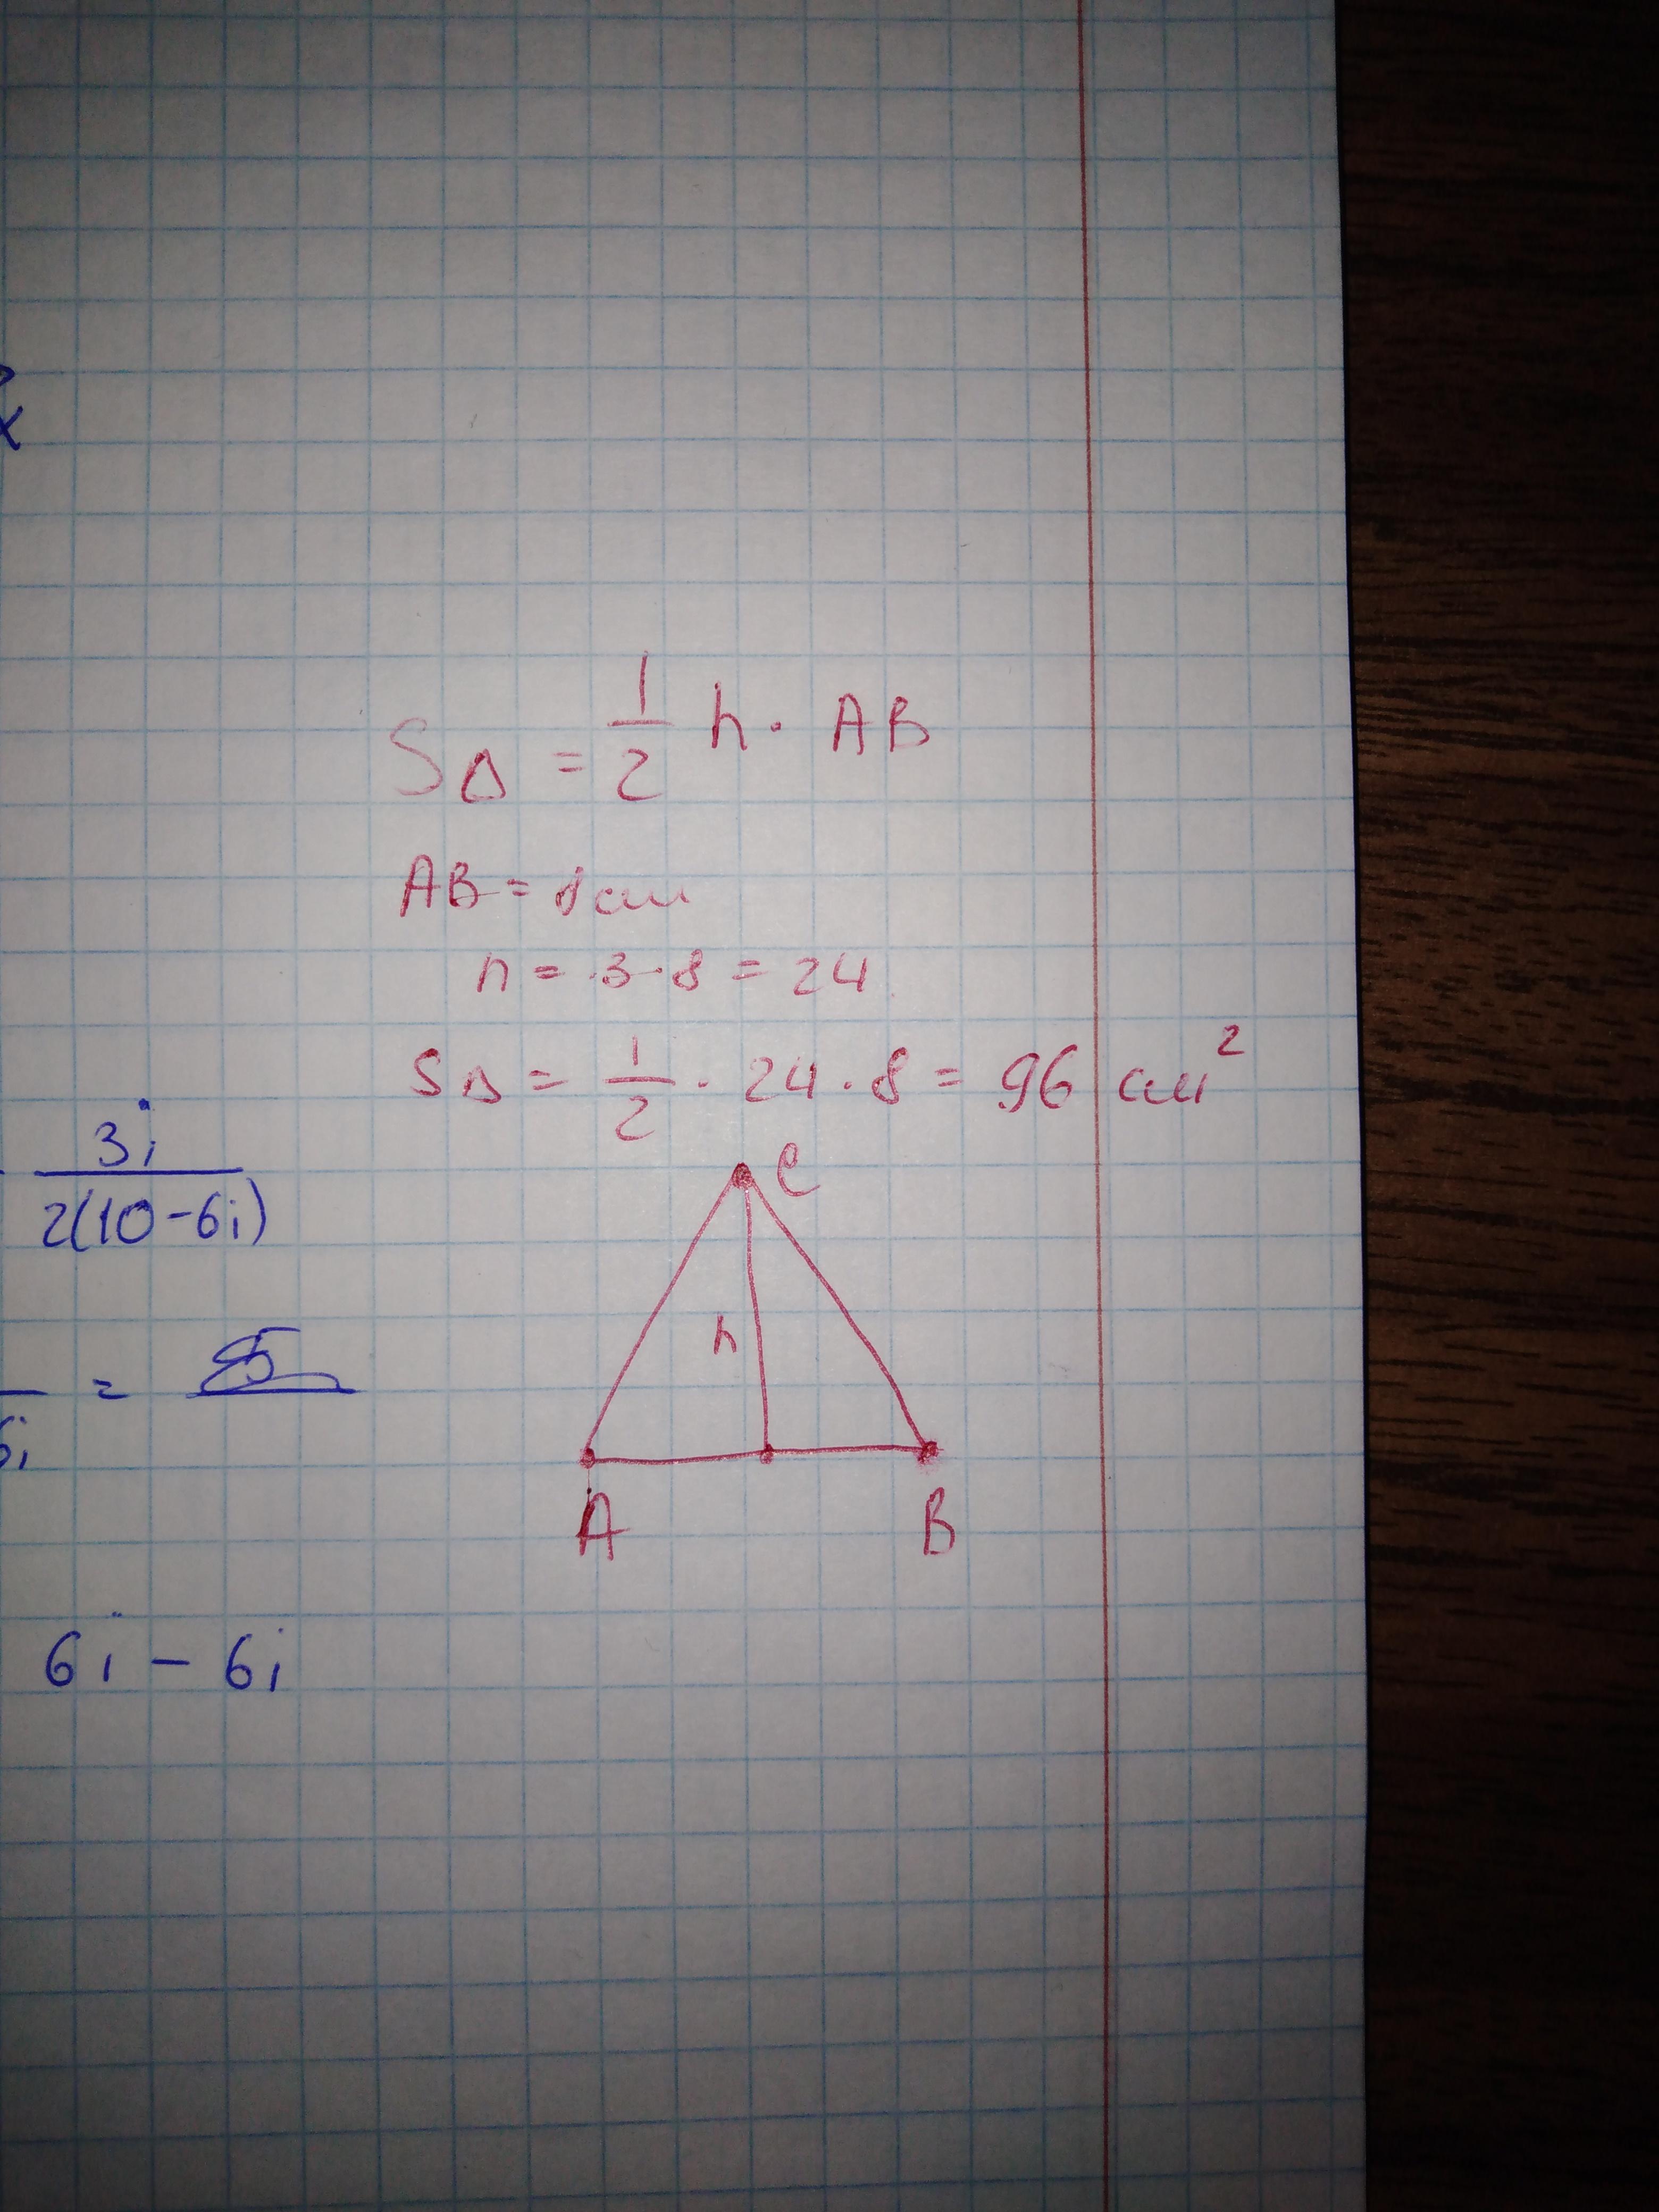 x
S△ = 1/2 h · AB
AB = 8 см
h = 3·8 = 24
S△ = 1/2 · 24 · 8 = 96 см²
3i / 2(10-6i)
C
h
=
6i
A B
6i - 6i